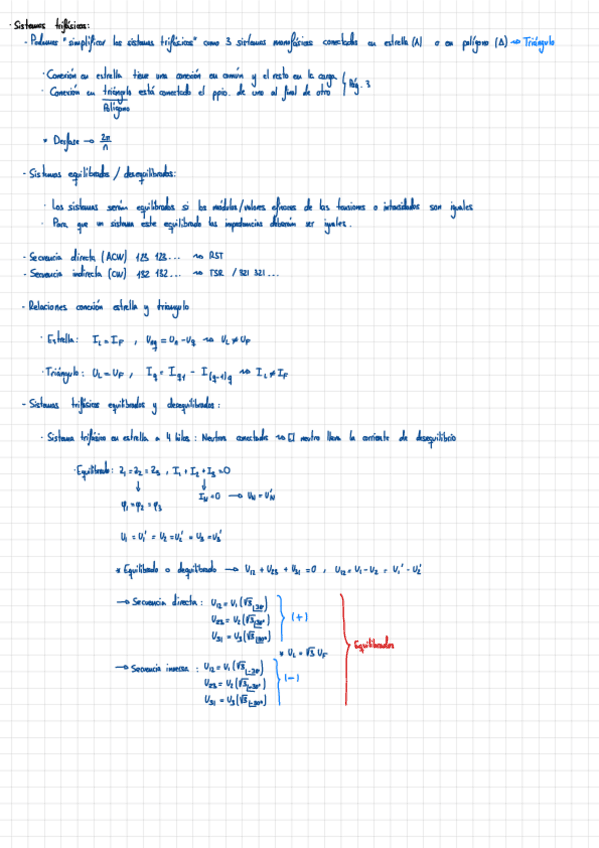 · Sistemas trifásicos:
- Podemos "simplificar los sistemas trifásicos" como 3 sistemas monofásicos conectados en estrella (λ) o en polígono (Δ) → Triángulo
· Conexión en estrella tiene una conexión en común y el resto en la carga
· Conexión en triángulo está conectado el ppio. de uno al final de otro } Pág. 3
Polígono
* Desfase → 2π/n
- Sistemas equilibrados / desequilibrados:
· Los sistemas serán equilibrados si los módulos/valores eficaces de las tensiones o intensidades son iguales
· Para que un sistema este equilibrado las impedancias deberán ser iguales.
- Secuencia directa (ACW) 123 123... → RST
- Secuencia indirecta (CW) 132 132... → TSR / 321 321...
- Relaciones conexión estrella y triangulo
· Estrella: I_L = I_F , U_0q = U_0 - U_q → U_L ≠ U_F
· Triángulo: U_L = U_F , I_q = I_q1 - I_(q-1)q → I_L ≠ I_F
- Sistemas trifásicos equilibrados y desequilibrados:
· Sistema trifásico en estrella a 4 hilos: Neutros conectados → El neutro lleva la corriente de desequilibrio
· Equilibrado: Z_1 = Z_2 = Z_3 , I_1 + I_2 + I_3 = 0
↓ ↓
φ_1 = φ_2 = φ_3 I_N = 0 → U_N = U_N'
U_1 = U_1' = U_2 = U_2' = U_3 = U_3'
* Equilibrado o desquilibrado → U_12 + U_23 + U_31 = 0 , U_12 = U_1 - U_2 = U_1' - U_2'
→ Secuencia directa: U_12 = U_1 (√3 ∠30°)
U_23 = U_2 (√3 ∠30°) } (+)
U_31 = U_3 (√3 ∠30°)
* U_L = √3 U_F } Equilibrados
→ Secuencia inversa: U_12 = U_1 (√3 ∠-30°)
U_23 = U_2 (√3 ∠-30°) } (-)
U_31 = U_3 (√3 ∠-30°)